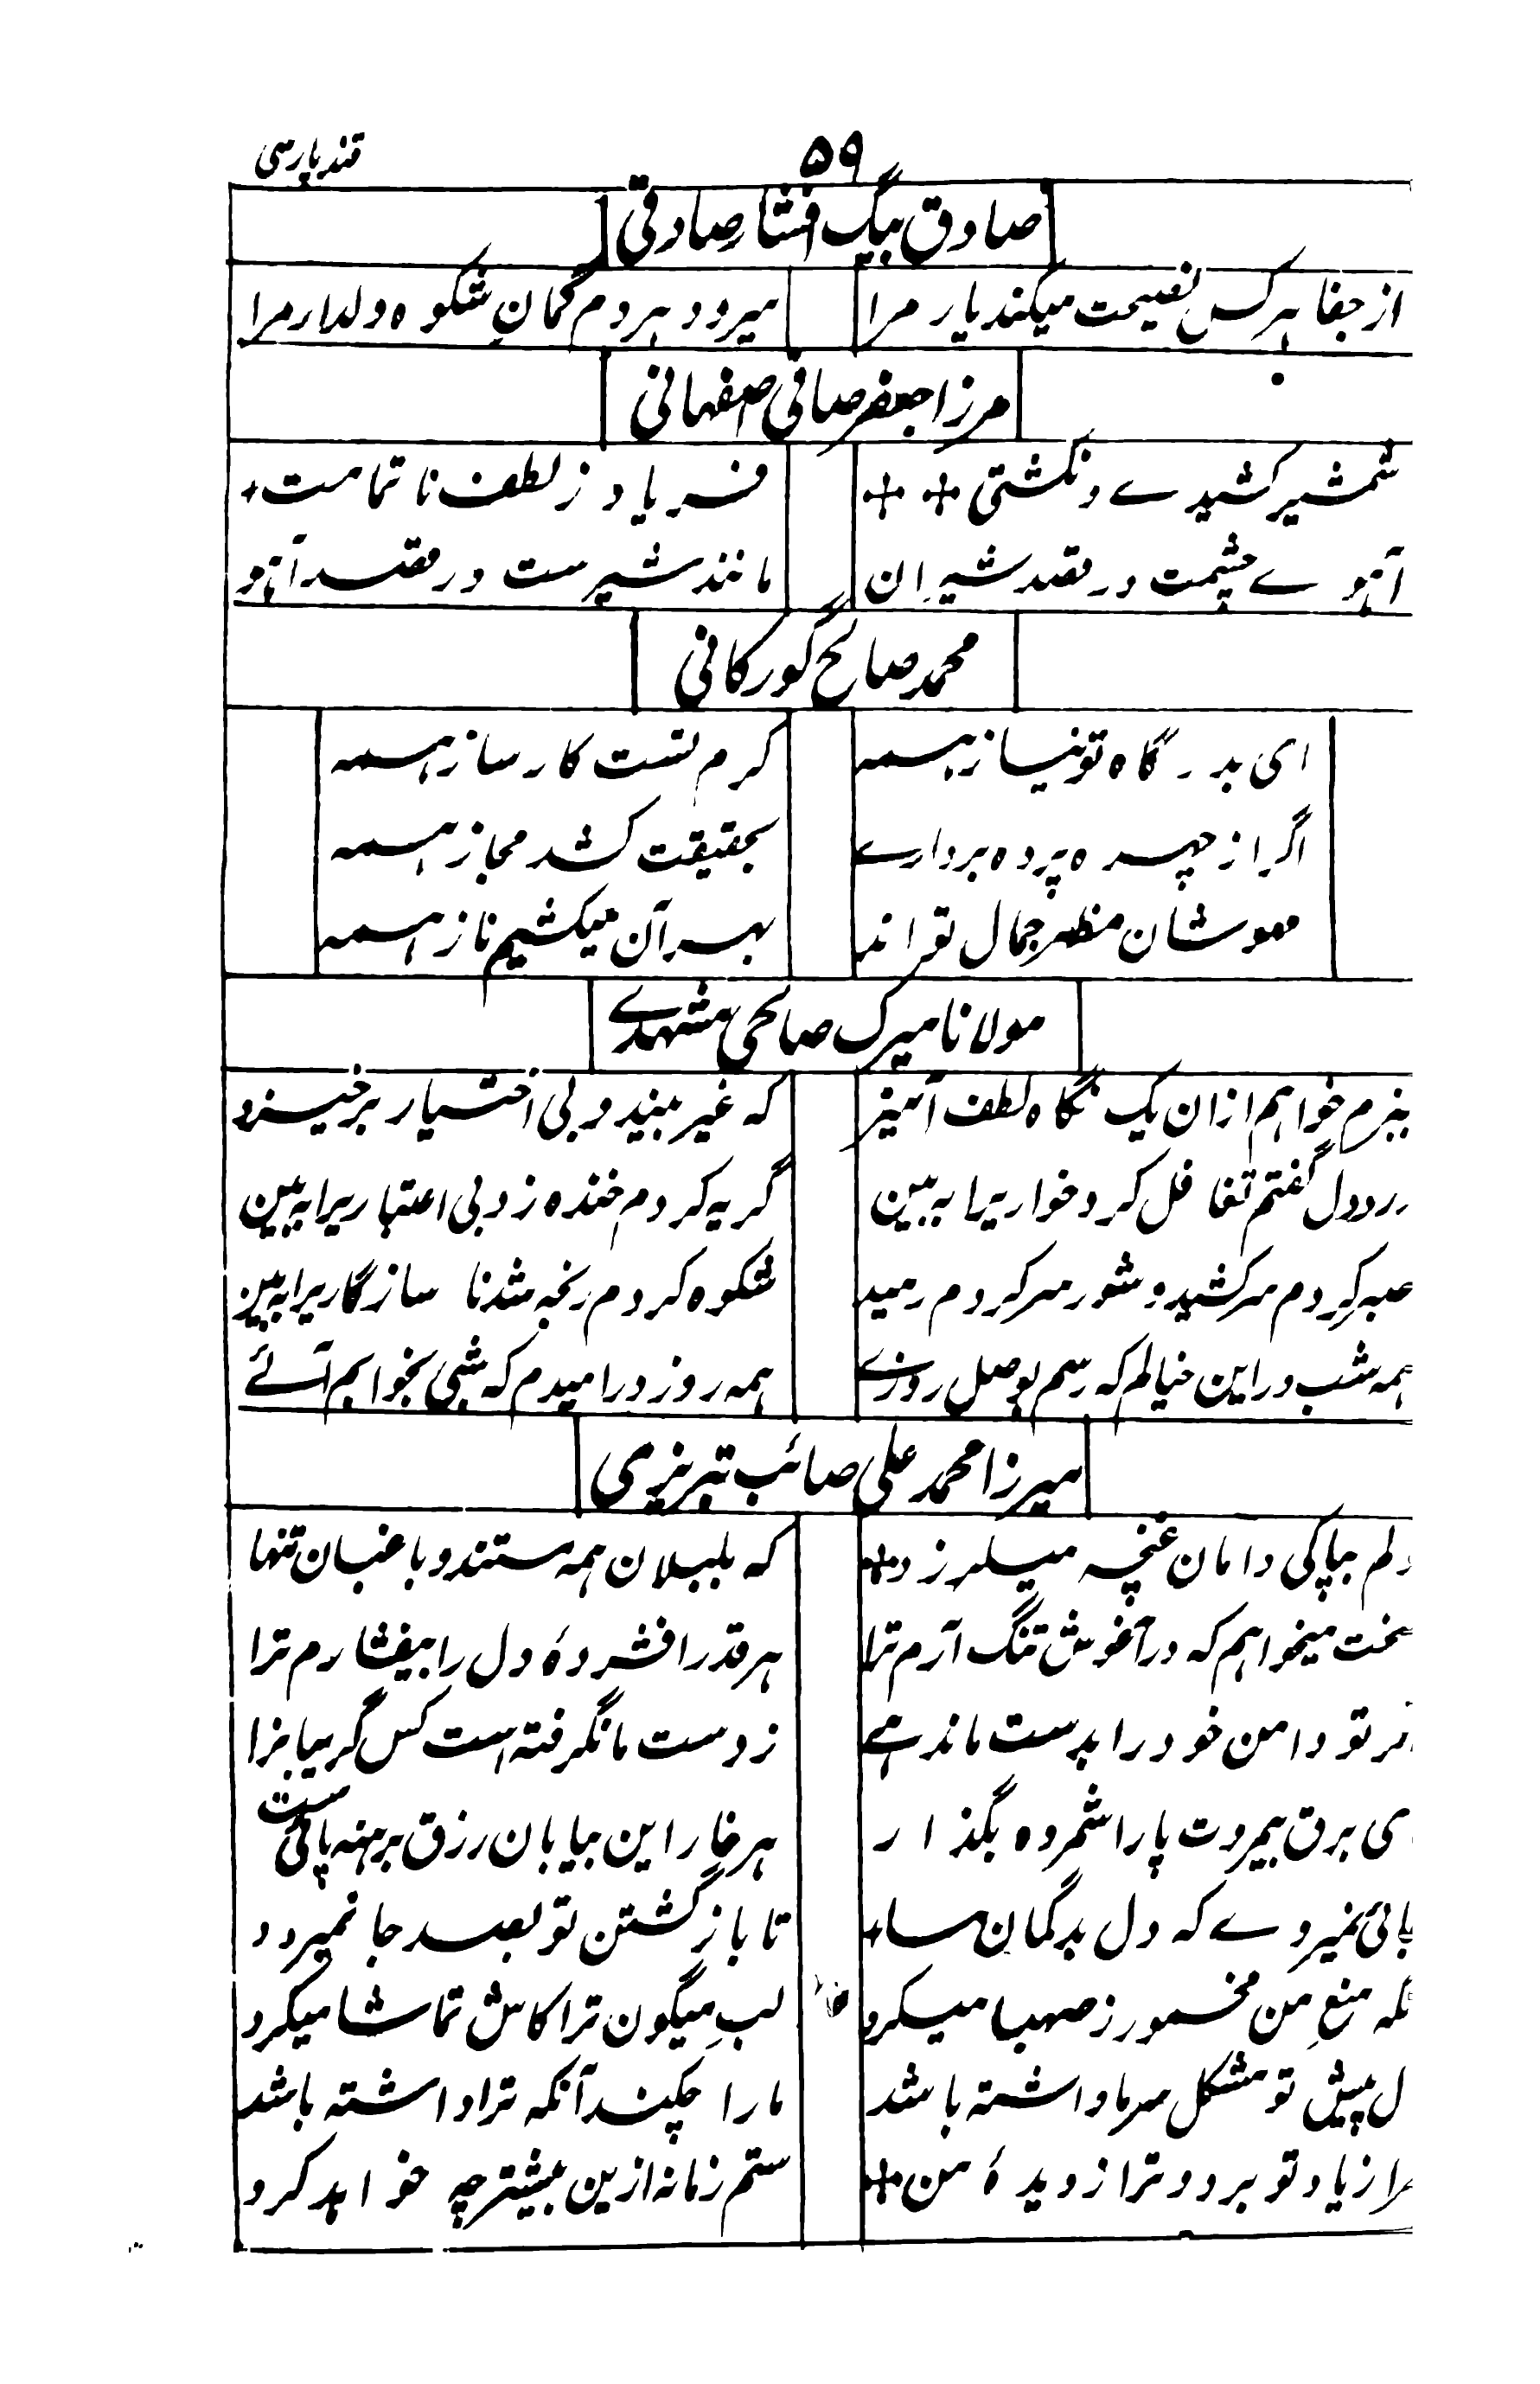 قند پارسی
۵۹
صادق بیگ افشار صادقی
از جفا هرکس نصیحت میکند یار مرا میرود هردم گمانِ شکوه دلدار مرا
مرزا جعفر صافی صفهانی
شمشیر کشیدے و نکشتی فریاد ز لطف ناتمامت
آہوے چشمت در قصد شیران مانند شیرست در قصد آہو
محمد صالح گورکانی
ای بدرگاه تو نیاز ہمه کرم تست کارساز ہمه
اگر از چہره پرده بردارے بحقیقت کشد مجاز ہمه
مہوشان مظہر جمال تو اند بہر آن میکشیم ناز ہمه
مولانا میرک صالحی مشہدے
ببزم خواہم ازان یک نگاه لطف آمیز که غیر بیند و بی اختیار برخیزد
درد دل گفتم تغافل کرد خواریرا ببین گریه کردم خنده زد بی اعتباریرا ببین
کردم سرکشید و شور سرکردم رمید شکوه کردم رنجه شد ناسازگاریرا ببین
ہمه شب در این خیالم که رسم بوصل روزے ہمه روز در امیدم که شبی بخوابم آئے
میرزا محمد علی صائب تبریزی
دلم بپاکی دامان غنچه میلرزد که بلبلان ہمه مستند و باغبان تنہا
سخت میخواہم که در آغوش تنگ آرم ترا ہرقدر افشردهٔ دل را بیفشارم ترا
تو دامن خود را بدست ما ندہی ز دست ما نگرفته است کس گریبانرا
ای برق بیمروت پا را شمرده بگذار ہر خار این بیابان رزق برہنه پائیست
نمیروے که دل بدگمان ما تا بازگشتن تو بصد جا نمیرود
منعِ من مخمور ز صہبا میکرد لبِ میگون ترا کاش تماشا میکرد
دل پیش تو مشکل سر ما داشته باشد ما را چکند آنکه ترا داشته باشد
مرا ز یاد تو برد و ترا ز دیدهٔ من ستم زمانه ازین بیشتر چه خواہد کرد